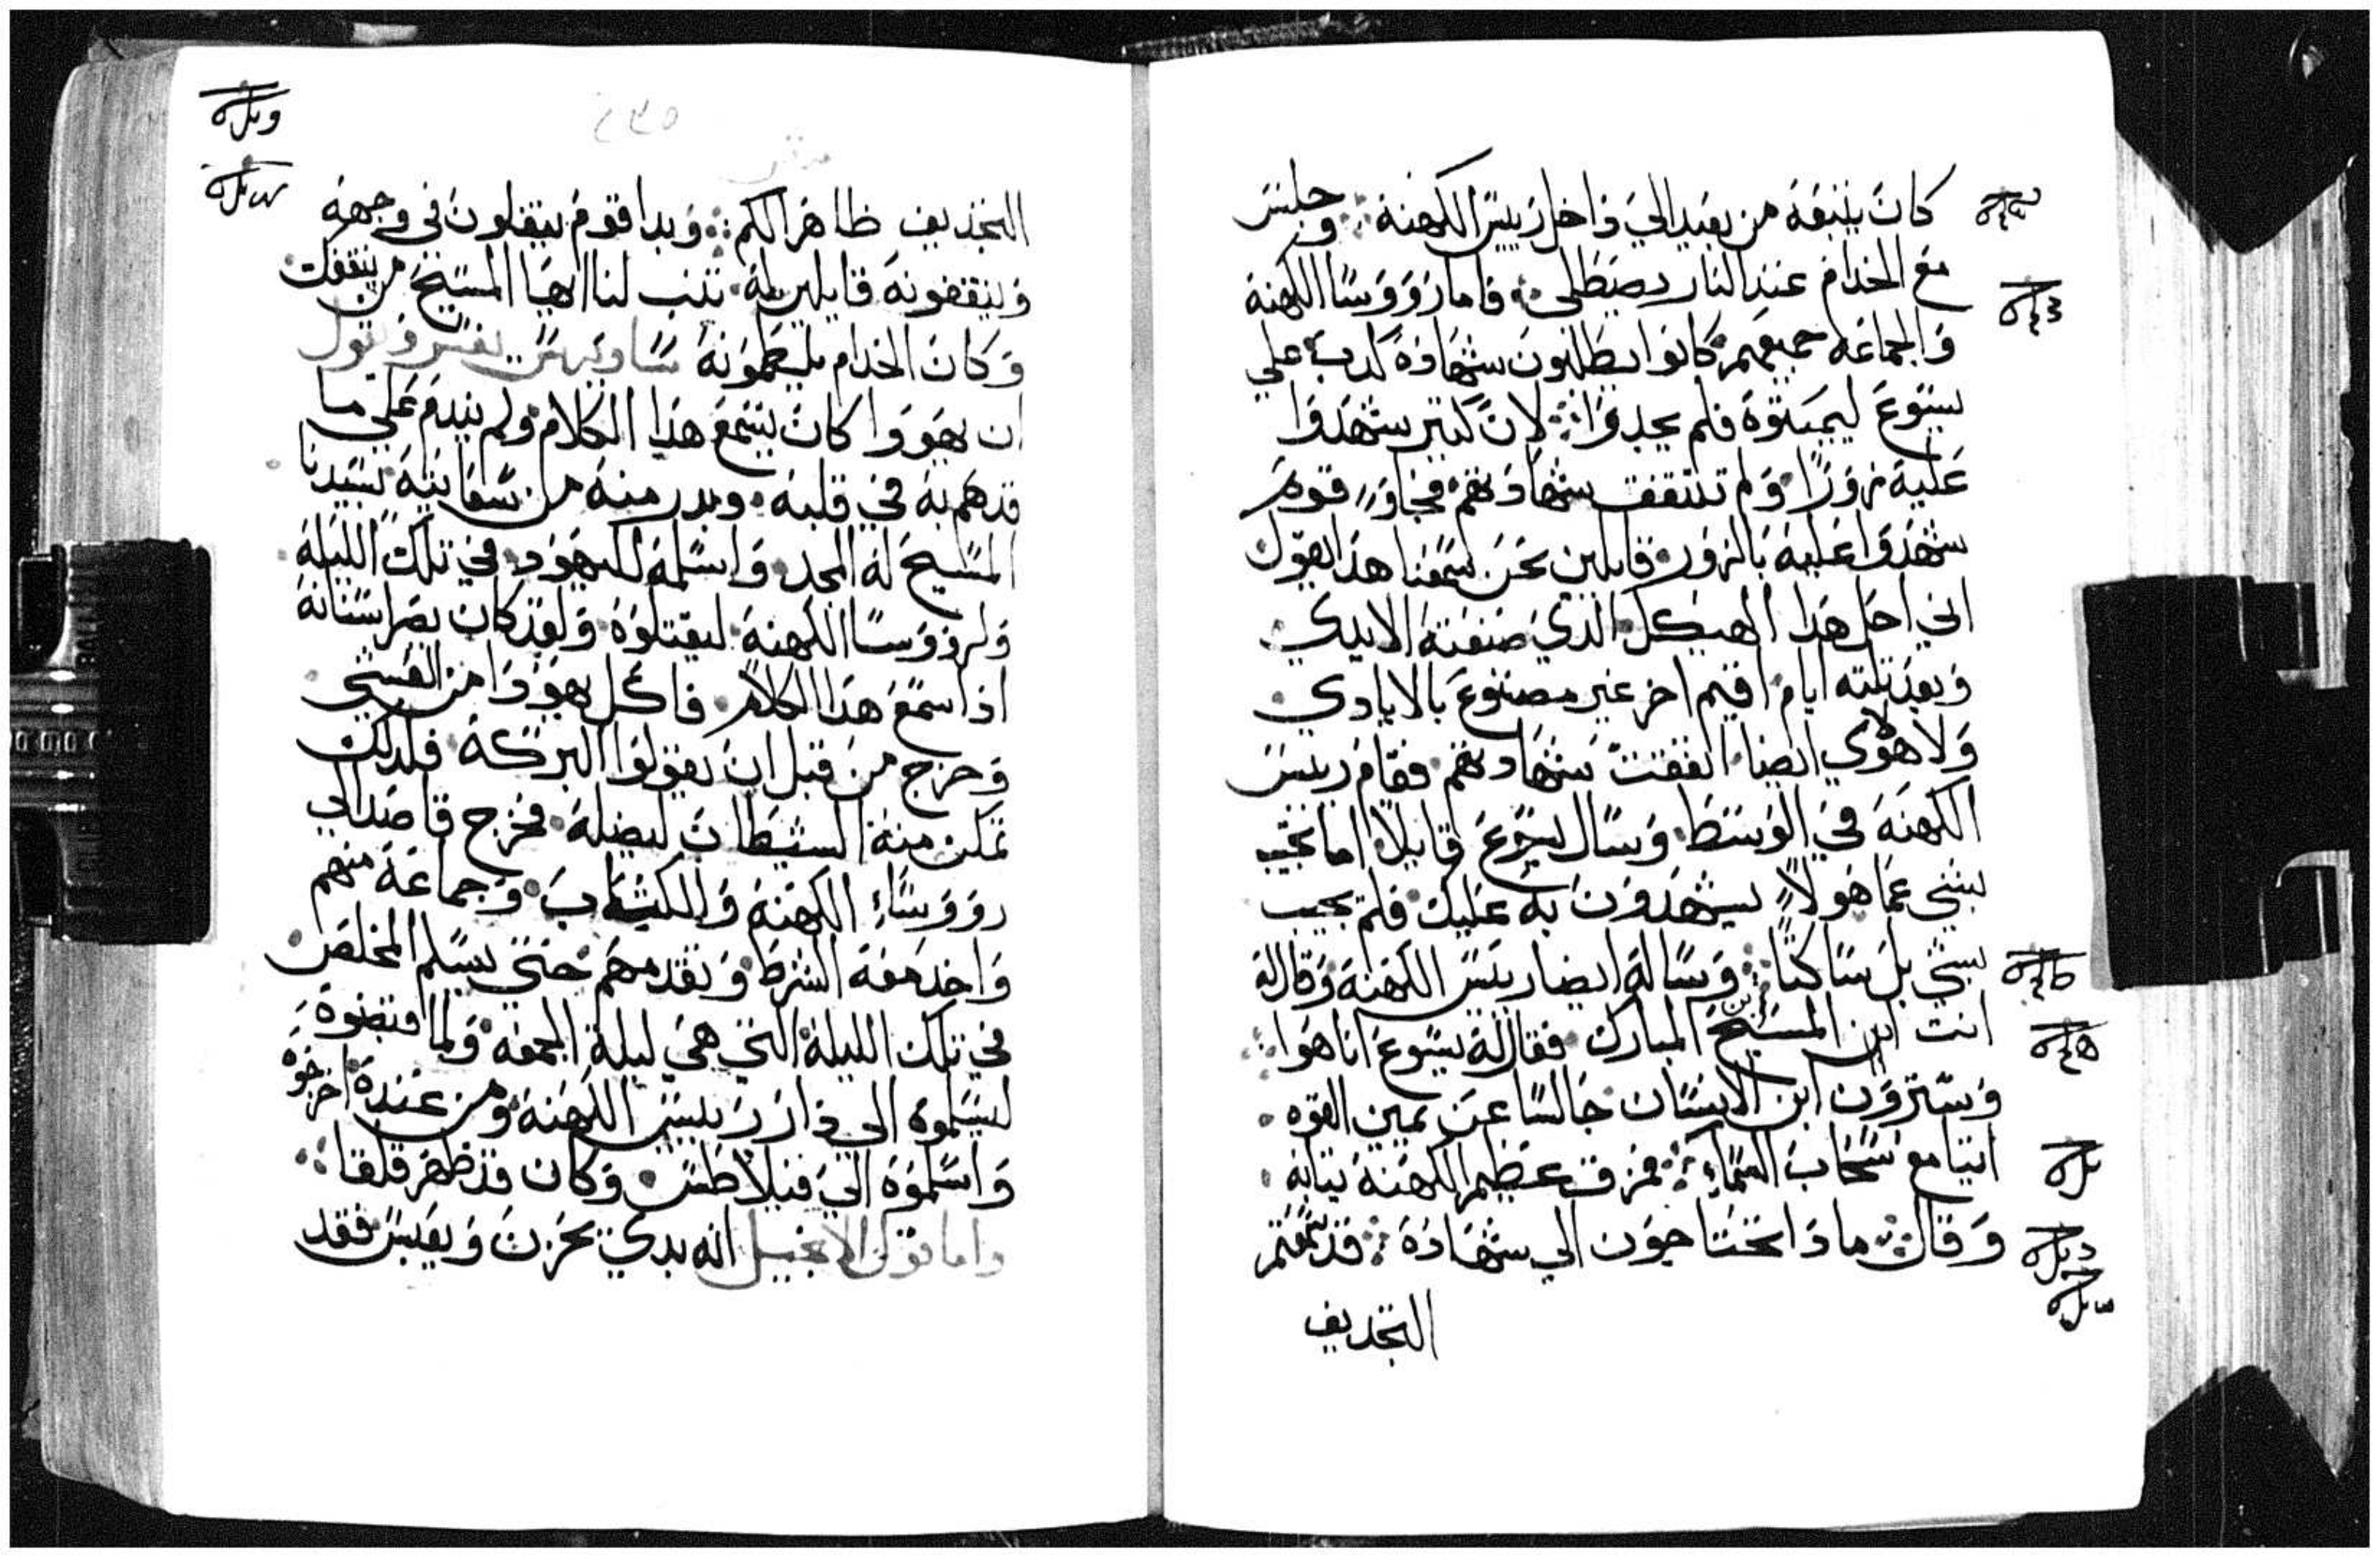 كان يتبعه من بعيد الي داخل رييس الكهنة وجلس
مع الخدام عند النار يصطلي فاما رووسا الكهنة
والجماعه جميعهم كانوا يطلبون شهادة كدب علي
يسوع ليميتوه فلم يجدوا لان كتير شهدوا
عليه زورا ولم تتفق شهادتهم فجاو قوم
شهدوا عليه بالزور قايلين نحن سمعنا هدا القول
اني احل هدا الهيكل الدي صنعته الايدي
وبعد تلته ايام اقيم اخر غير مصنوع بالايادي
ولا هولاي ايضا اتفقت شهادتهم فقام رييس
الكهنة في الوسط وسال يسوع قايلا اما تجيب
بشي عما هولا يشهدون به عليك فلم يجيب
بشي بل ساكتا وساله ايضا رييس الكهنة وقال له
انت ابن المسيح المبارك فقال له يسوع انا هوا
وسترون ابن الانسان جالسا عن يمين القوه
اتيا مع سحاب السماء فمزق عظيم الكهنة تيابه
وقال ما دا تحتاجون الي شهادة قد سمعتم
التجديف
٢٣٥
التجديف ظاهرا لكم وبدا قوم يتفلون في وجهه
وينقفونه قايلين له تنب لنا ايها المسيح من ينقفك
وكان الخدام يليطمونه ساويرس يفسر ويقول
ان يهودا كان يسمع هدا الكلام ولم يندم علي ما
قد هم به في قلبه وبدر منه من سعايته بسيدنا
المسيح له المجد واسلمه لليهود في تلك الليلة
ولرووسا الكهنة ليقتلوه ولقد كان يصر اسنانه
ادا سمع هدا الكلام فاكل يهودا من الفسح
وخرج من قبل ان يقولوا البركة فلدلك
تمكن منه الشيطان ليضله فخرج قاصدا الي
رووساء الكهنة والكتاب وجماعة منهم
واخد معه الشرط وتقدمهم حتي يسلم المخلص
في تلك الليلة التي هي ليلة الجمعة ولما قبضوه
ليسلموه الي دار رييس الكهنة ومن عنده اخرجوه
واسلموه الي فيلاطس وكان قد ظهر قلقا
واما قول الانجيل انه بدي يحزن ويعبس فقد